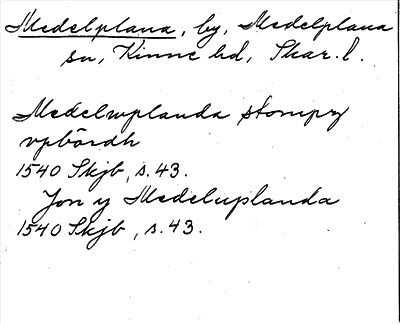 Medelplana, by, Medelplana
sn, Kinne hd, Skar. l.
Medelwplanda stompn
vpbördh
1540 Skjb, s. 43.
Jon y Medeluplanda
1540 Skjb, s. 43.